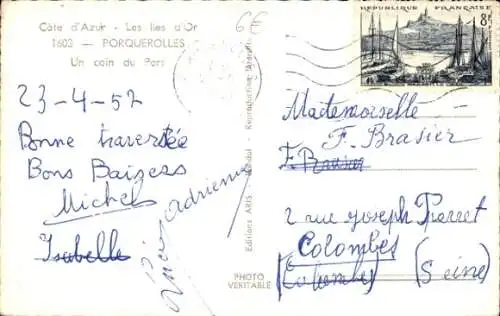 Côte d'Azur - Les Iles d'Or
1602 — PORQUEROLLES
Un coin du Port
6€
23-4-57
Bonne traversée
Bons Baizers
Michel
Isabelle
Adrienne
Editions ARIS
Reproduction
PHOTO
VERITABLE
REPUBLIQUE FRANÇAISE
8F
Mademoiselle
F. Brasier
F. Brasier
2 rue Joseph Perret
Colombes
(Colombes) (Seine)